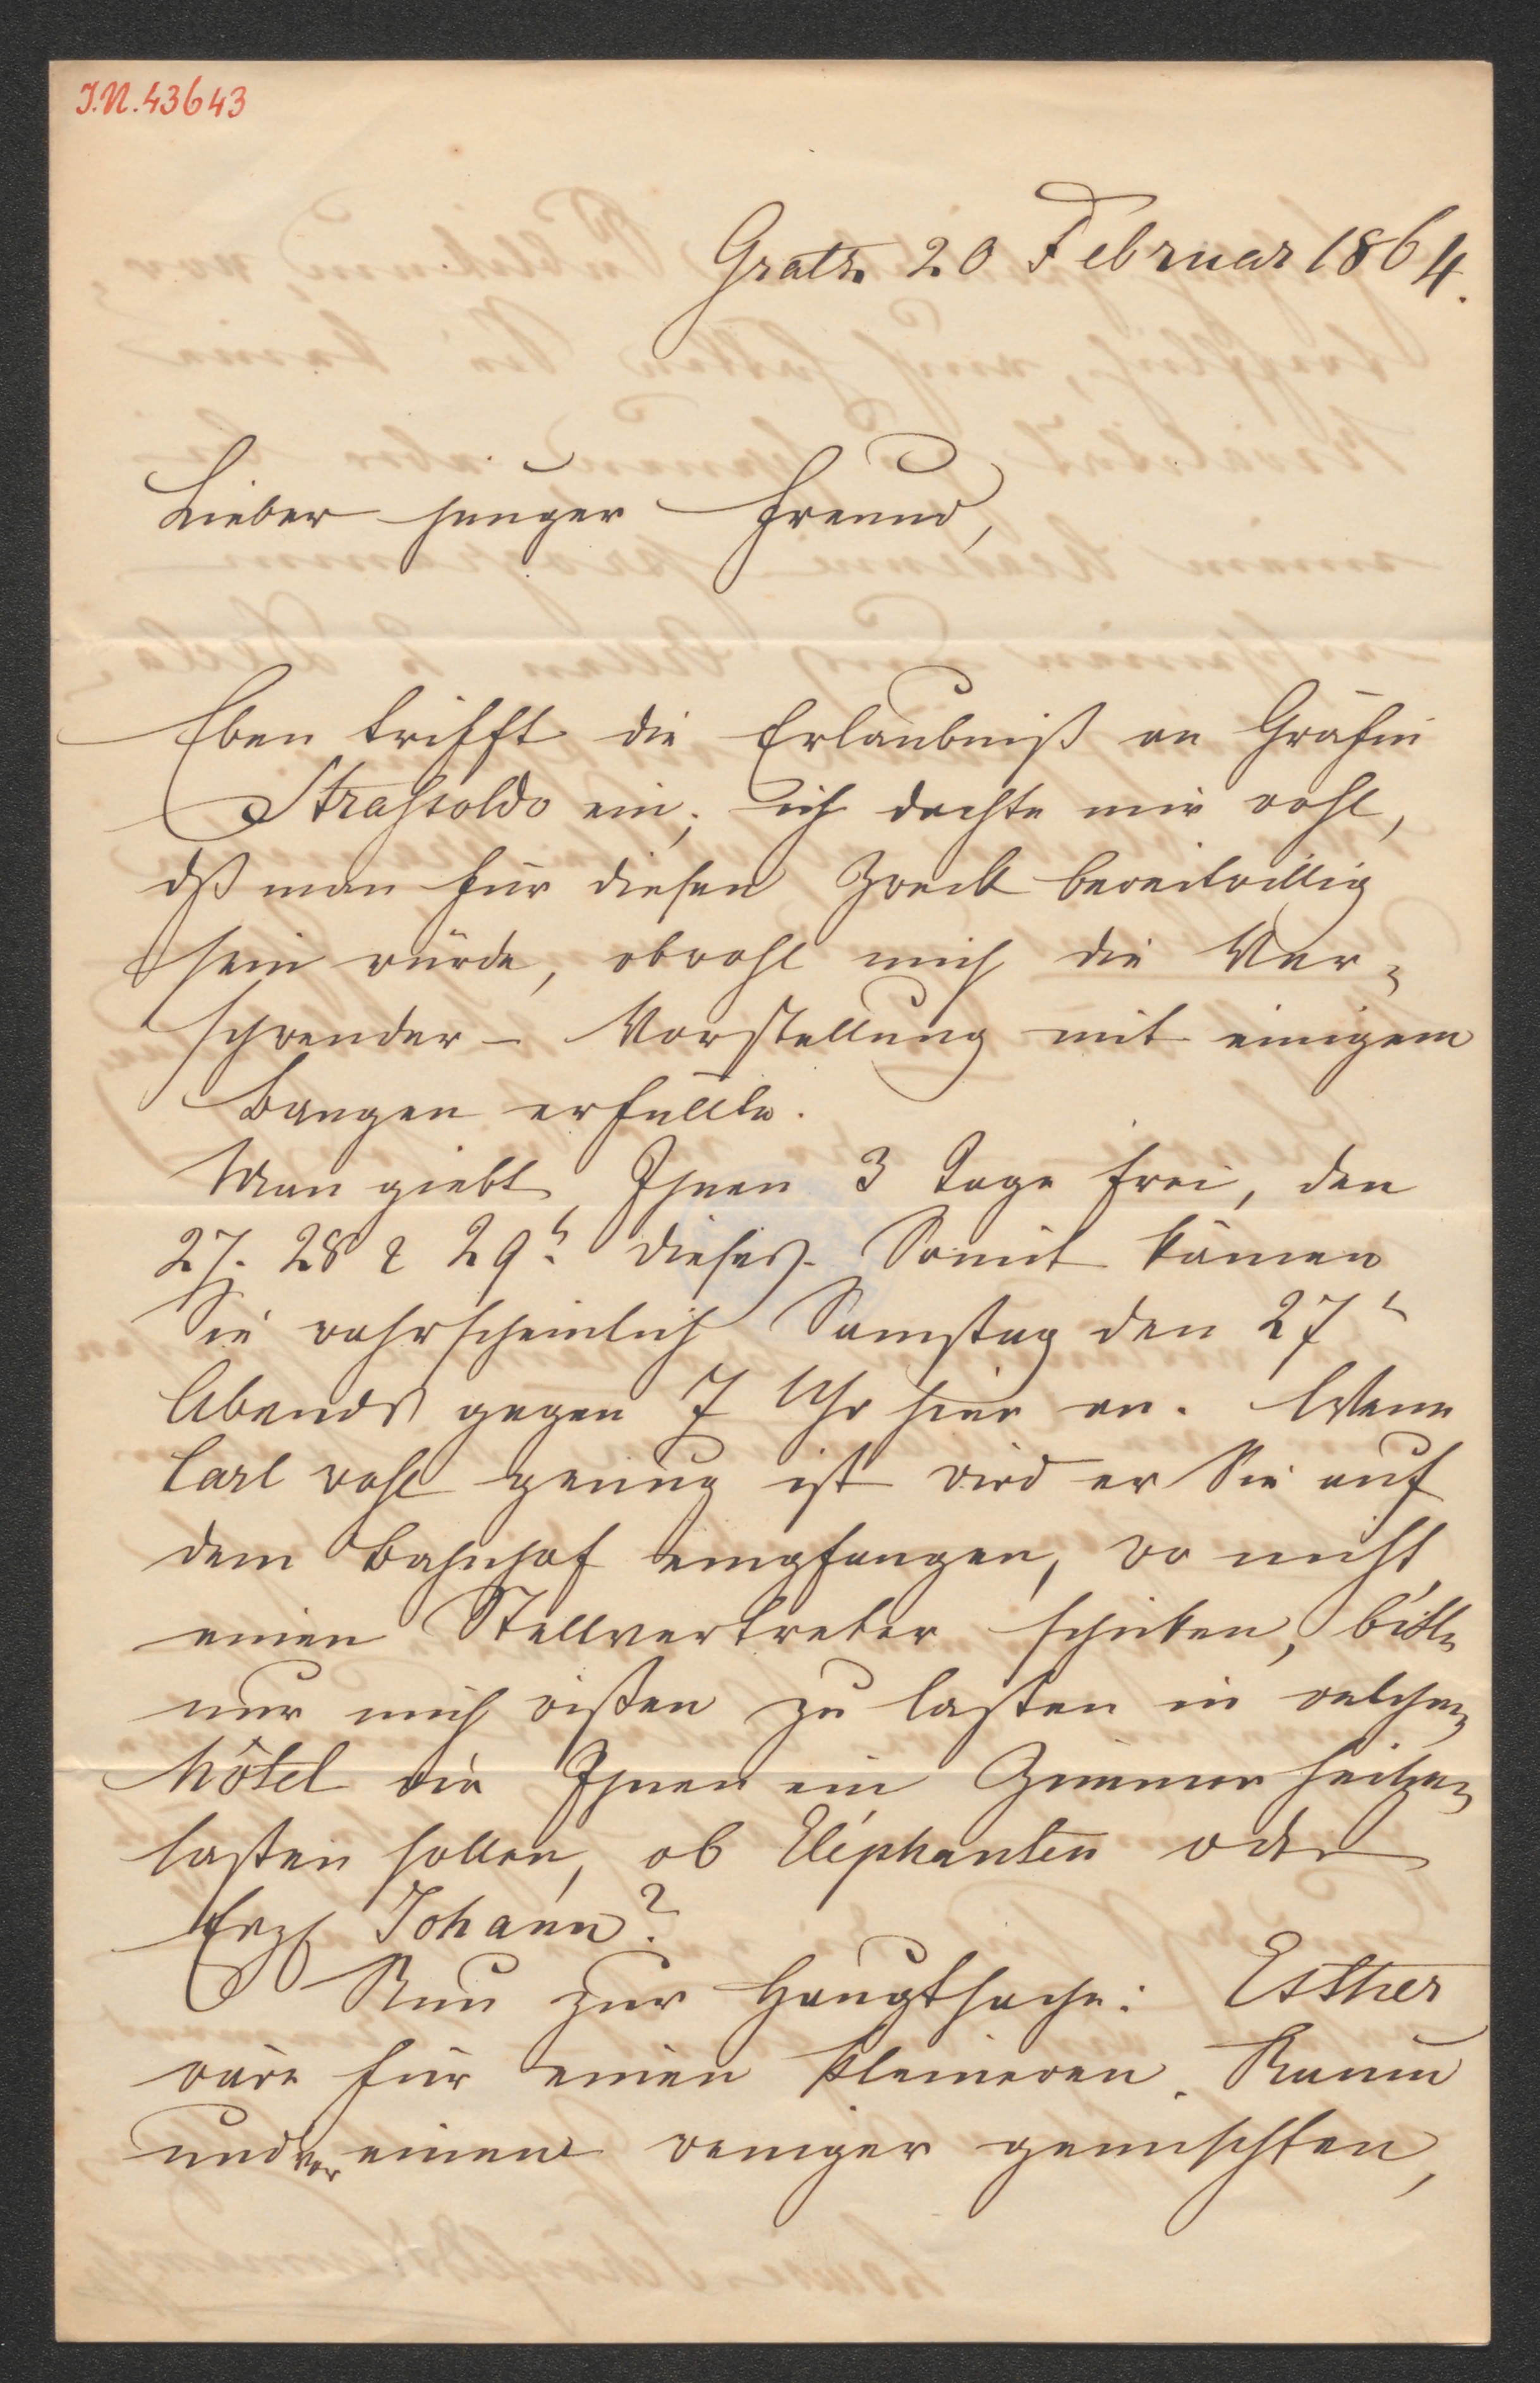 I.N. 43643
Gratz 20 Februar 1864.
Lieber junger Freund,
Eben trifft die Erlaubniß an Gräfin
Straßoldo ein; ich dachte mir wohl,
dß man für diesen Zweck bereitwillig
sein würde, obwohl mich die Ver-
schwender - Vorstellung mit einigem
Bangen erfüllte.
Man giebt Ihnen 3 Tage frei, den
27. 28 & 29t dieses. Somit kämen
Sie wahrscheinlich Samstag den 27t
Abends gegen 7 Uhr hier an. Wenn
Carl wohl genug ist wird er Sie auf
dem Bahnhof empfangen, wo nicht,
einen Stellvertreter schicken, bitte
nur mich wißen zu laßen in welchem
Hôtel wir Ihnen ein Zimmer heitzen
laßen sollen, ob Elephanten oder
Erzh Johann?
Nun zur Hauptsache: Esther
wäre für einen kleineren Raum
und vor einem weniger gemischten,